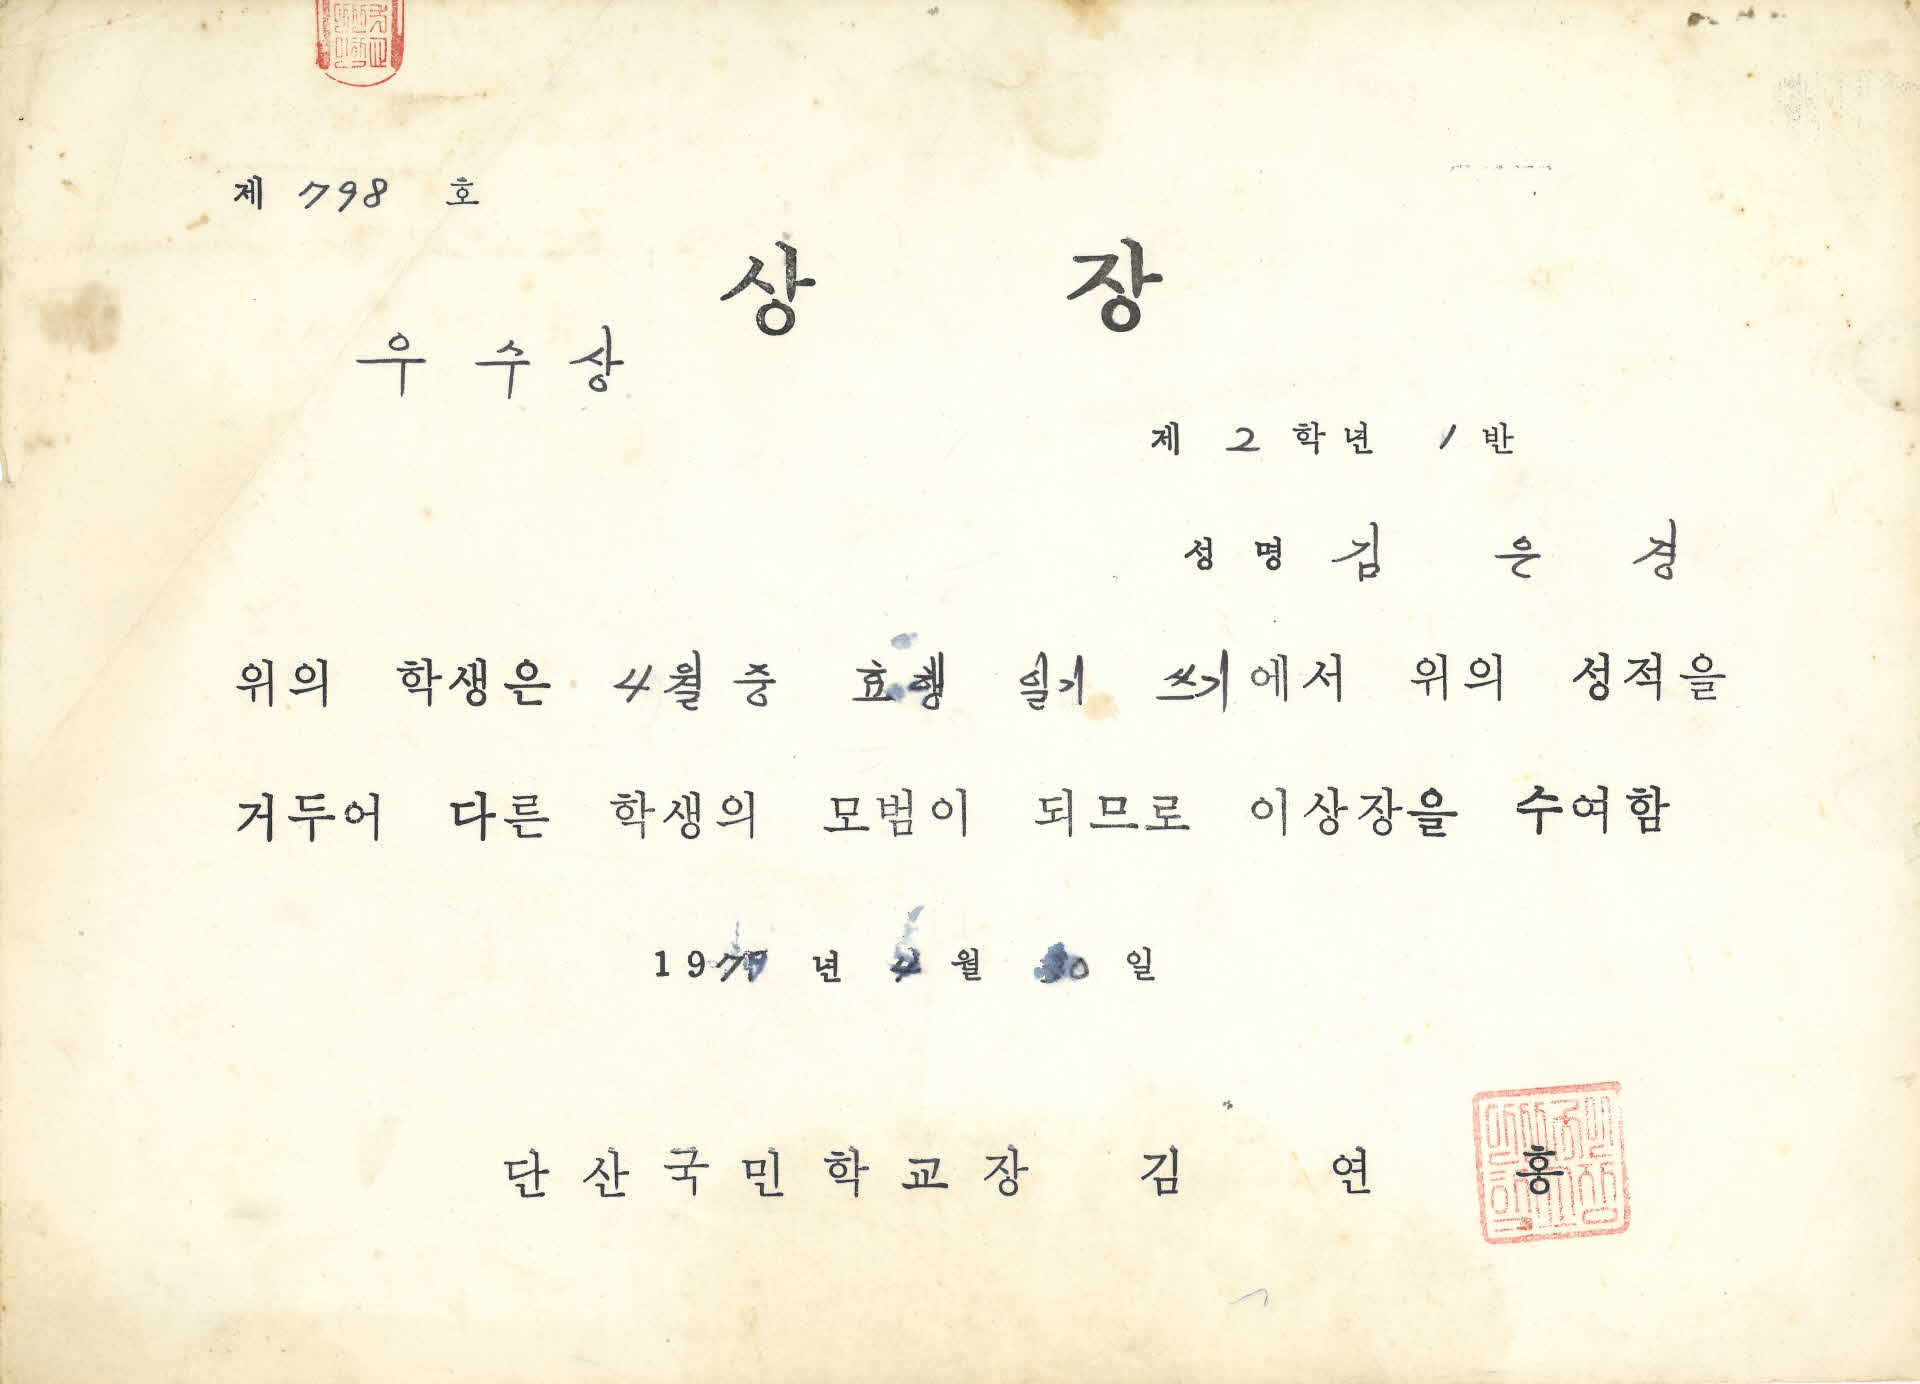 제 798 호
상 장
우수상
제 2 학년 1 반
성명 김 은 경
위의 학생은 4월 중 효행 일기 쓰기에서 위의 성적을
거두어 다른 학생의 모범이 되므로 이상장을 수여함
1979 년 4 월 30 일
단산국민학교장 김 연 홍